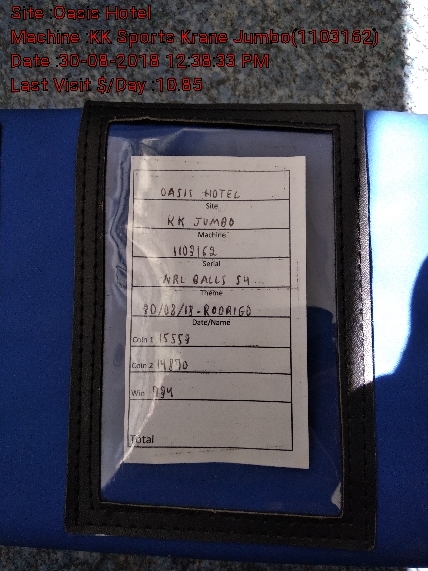 Site :Oasis Hotel
Machine :KK Sports Krane Jumbo(1103162)
Date :30-08-2018 12:38:33 PM
Last Visit $/Day :10.85
OASIS HOTEL
Site
KK JUMBO
Machine
1103162
Serial
NRL BALLS S4
Theme
30/08/18-RODRIGO
Date/Name
Coin 1 15553
Coin 2 14870
Win 794
Total